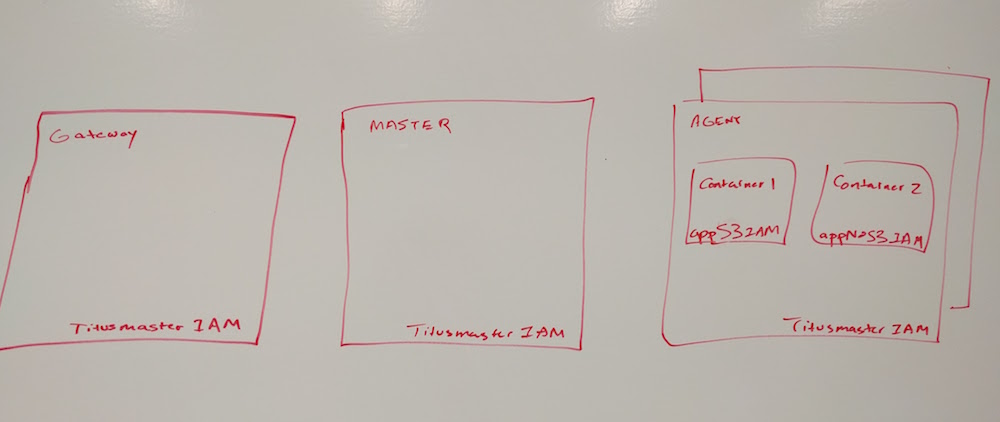 Gateway
Titusmaster IAM
MASTER
Titusmaster IAM
AGENT
Container 1
appS3IAM
Container 2
appNoS3IAM
Titusmaster IAM